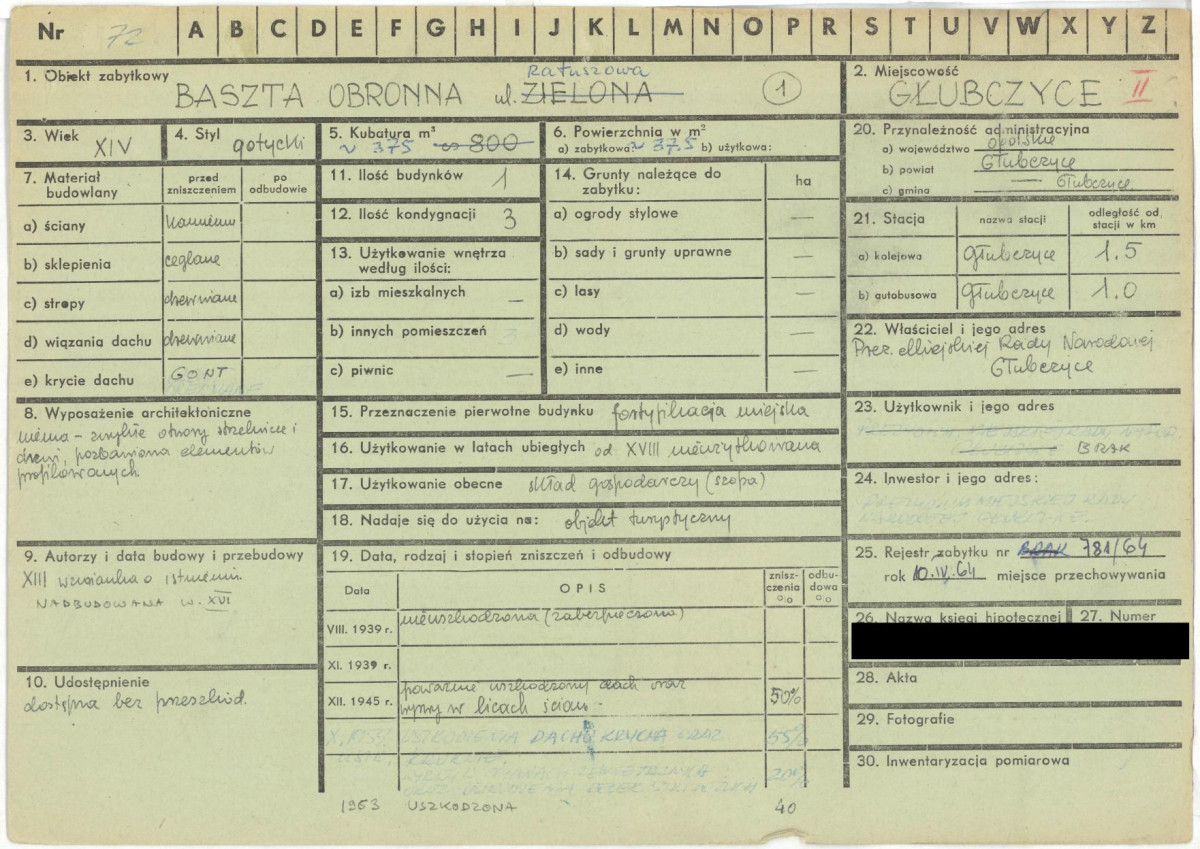 Nr 72 A B C D E F G H I J K L M N O P R S T U V W X Y Z
1. Obiekt zabytkowy
BASZTA OBRONNA ul. ZIELONA Ratuszowa
1
2. Miejscowość
GŁUBCZYCE II
3. Wiek XIV
4. Styl gotycki
5. Kubatura m³
~ 375 ~ 800
6. Powierzchnia w m²
a) zabytkowa: ~ 37.5 b) użytkowa:
20. Przynależność administracyjna
a) województwo opolskie
b) powiat Głubczyce
c) gmina — Głubczyce
7. Materiał budowlany
przed zniszczeniem
po odbudowie
a) ściany kamienne
b) sklepienia ceglane
c) stropy drewniane
d) wiązania dachu drewniane
e) krycie dachu GONT
8. Wyposażenie architektoniczne
niema - zwykłe otwory strzelnicze i
drzwi, pozbawiona elementów
profilowanych
9. Autorzy i data budowy i przebudowy
XIII wzmianka o istnieniu.
NADBUDOWANA W. XVI
10. Udostępnienie
dostępna bez przeszkód.
11. Ilość budynków 1
12. Ilość kondygnacji 3
13. Użytkowanie wnętrza
według ilości:
a) izb mieszkalnych —
b) innych pomieszczeń 3
c) piwnic —
14. Grunty należące do
zabytku:
ha
a) ogrody stylowe —
b) sady i grunty uprawne —
c) lasy —
d) wody —
e) inne —
15. Przeznaczenie pierwotne budynku fortyfikacja miejska
16. Użytkowanie w latach ubiegłych od XVIII nieużytkowana
17. Użytkowanie obecne skład gospodarczy (szopa)
18. Nadaje się do użycia na: objekt turystyczny
19. Data, rodzaj i stopień zniszczeń i odbudowy
Data
OPIS
znisz-
czenia
o/o
odbu-
dowa
o/o
VIII. 1939 r. nieuszkodzona (zabezpieczona)
XI. 1939 r.
XII. 1945 r. poważnie uszkodzony dach oraz
wyrwy w licach ścian. 50%
USZKODZENIA DACHU KRYCIA ORAZ 55%
20%
1963 USZKODZONA 40
21. Stacja
nazwa stacji
odległość od
stacji w km
a) kolejowa Głubczyce 1.5
b) autobusowa Głubczyce 1.0
22. Właściciel i jego adres
Prez. Miejskiej Rady Narodowej
Głubczyce
23. Użytkownik i jego adres
BRAK
24. Inwestor i jego adres:
PREZYDIUM MIEJSKIEJ RADY
NARODOWEJ GŁUBCZYCE.
25. Rejestr zabytku nr BRAK 781/64
rok 10.IV.64 miejsce przechowywania
26. Nazwa księgi hipotecznej
27. Numer
28. Akta
29. Fotografie
30. Inwentaryzacja pomiarowa